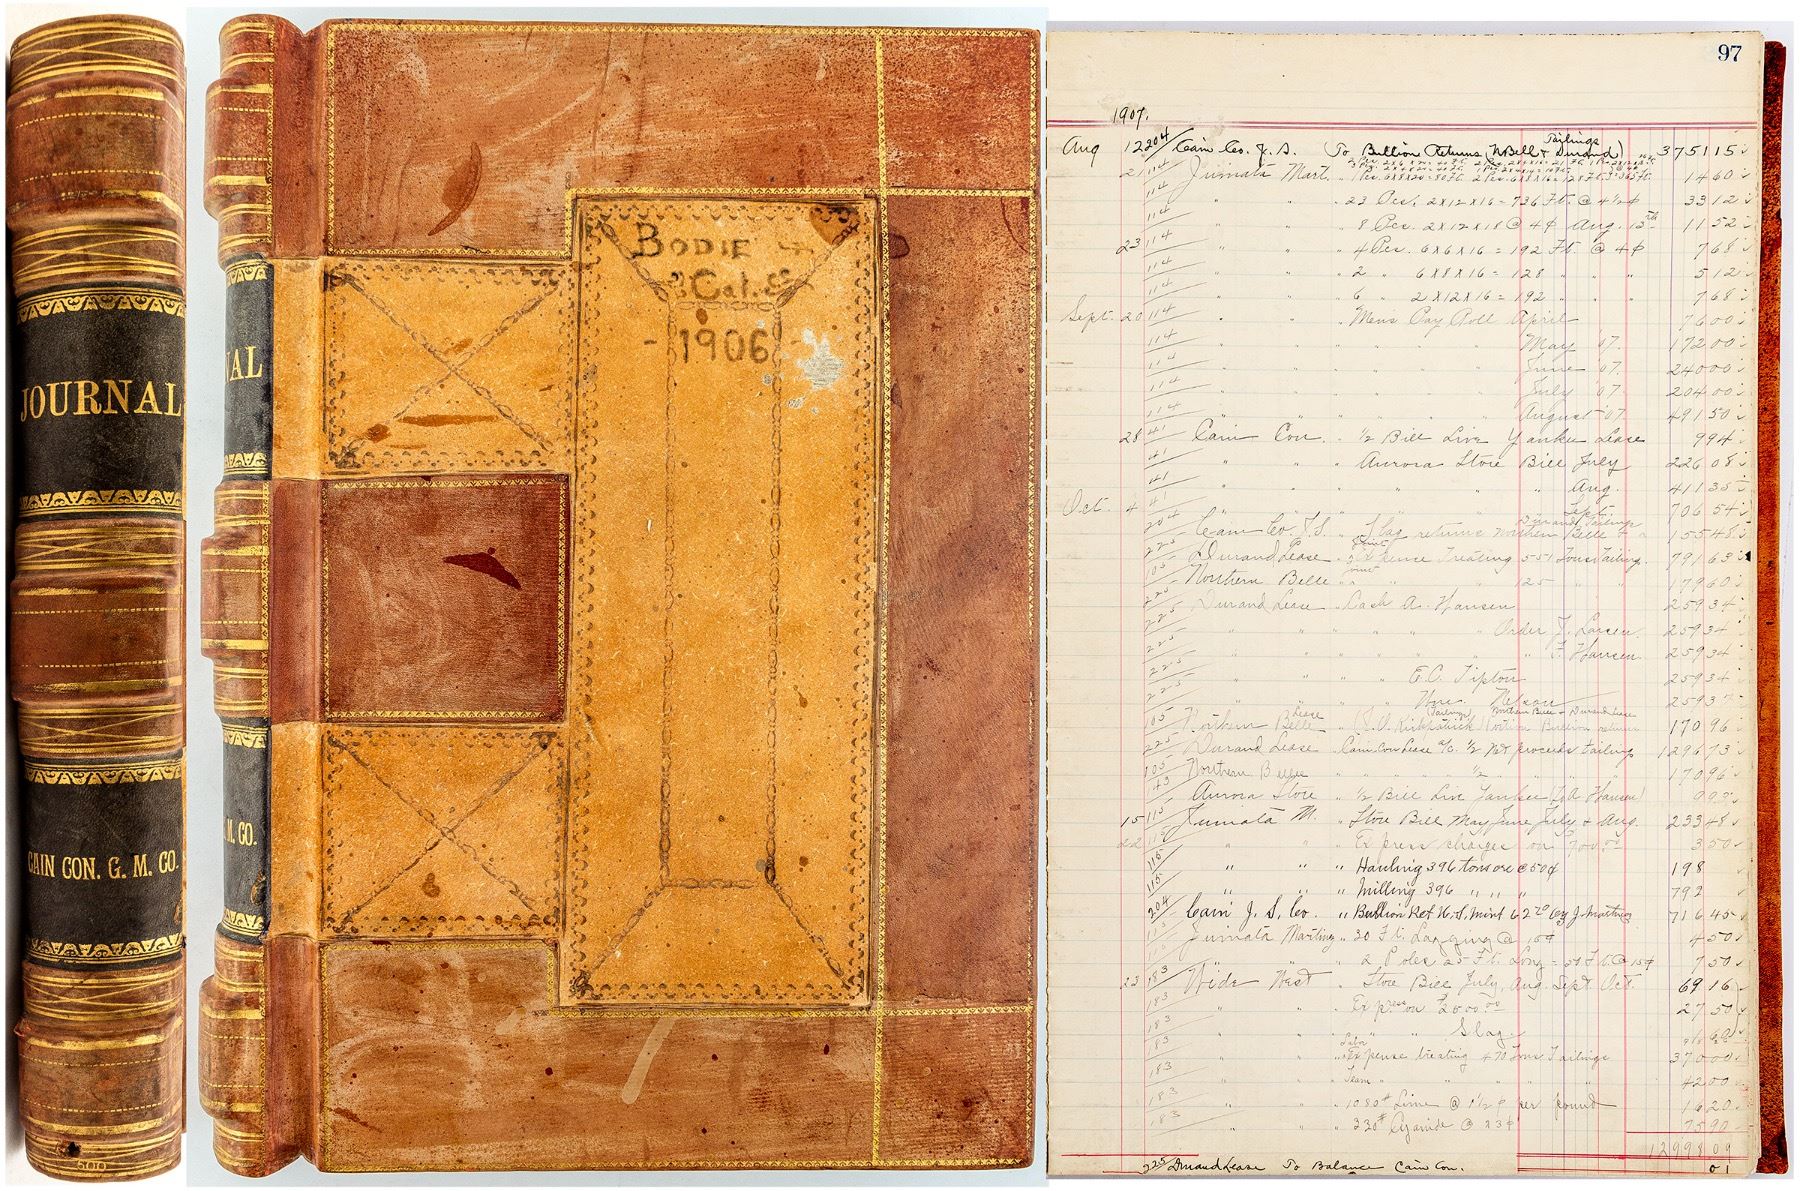 JOURNAL
CAIN CON. G. M. CO.
600
NAL
. M. CO.
BODIE
Cal.
- 1906 -
97
1907.
Tailings
Aug 12 204 Cain Co. J. S. (To Bullion Returns N Bell & Durand) 3751 15
21 114 Jumata Mart. " 14 60
114 " " " 23 Pcs. 2x12x16 = 736 Ft. @ 4½¢ 33 12
114 " " " 8 Pcs. 2x12x18 @ 4¢ Aug. 13th 11 52
23 114 " " " 4 Pcs. 6x6x16 = 192 Ft. @ 4¢ 7 68
114 " " " 2 " 6x8x16 = 128 " " " 5 12
114 " " " 6 " 2x12x16 = 192 " " " 7 68
Sept. 20 114 " " " Mens Pay Roll April 76 00
114 " " " " " " May '07. 172 00
114 " " " " " " June '07. 240 00
114 " " " " " " July '07. 204 00
114 " " " " " " August '07 491 50
28 41 Cain Con. " ½ Bill Live Yankee Lease 9 94
41 " " " Aurora Store Bill July 226 08
41 " " " " " " Aug. 411 35
Oct. 4 41 " " " " " " Sept. 706 54
Durand Tailings
204 Cain Co J. S. " Slag returns Northern Belle & 155 48
225 Durand Lease " Expense Treating 551 Tons Tailing. 791 63
105 Northern Belle " " " 125 " " 179 60
225 Durand Lease " Cash A. Hansen 259 34
225 " " " " " Order J. Larsen. 259 34
225 " " " " " " F. Hansen. 259 34
225 " " " " E. C. Tipton 259 34
225 " " " " Nelson 259 3
Lease (Tailings) Northern Belle & Durand Lease
105 Northern Belle " (J. A. Kirkpatrick) Portion Bullion returns 170 96
225 Durand Lease " Cain Con Lease a/c. ½ Net proceeds tailings 1296 73
105 Northern Belle " " " " ½ " " " 170 96
143 Aurora Store " ½ Bill Live Yankee (A Hansen) 9 93
15 115 Jumata M. " Store Bill May June July & Aug. 233 48
22 115 " " " Express charges on 700.00 3 50
115 " " " Hauling 396 tons ore @ 50¢ 198
115 " " " Milling 396 " " " 792
204 Cain J. S. Co. " Bullion Ret U. S. mint by J. Marting 716 45
115 Jumata Marting " 30 Ft. Lagging @ .15¢ 4 50
115 " " " 2 Poles 25 Ft. Long = 50 Ft. @ 15¢ 7 50
23 183 Wide West " Store Bill July, Aug. Sept. Oct. 69 16
183 " " " Express on 2000.00 27 50
183 " " " " " Slag
Labor
183 " " " Expense treating 470 Tons Tailings 370 00
183 " " " Team " " " " " 42 00
183 " " " 1080# Lime @ 1½¢ per pound 16 20
183 " " " 330# Cyanide @ 23¢ 75 90
12998 09
225 Durand Lease To Balance Cain Con. 01